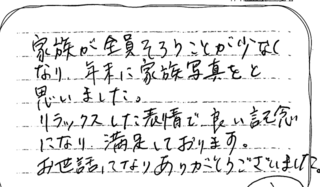 家族が全員そろうことが少なく
なり 年末に家族写真をと
思いました。
リラックスした表情で良い記念
になり 満足しております。
お世話になりありがとうございました。